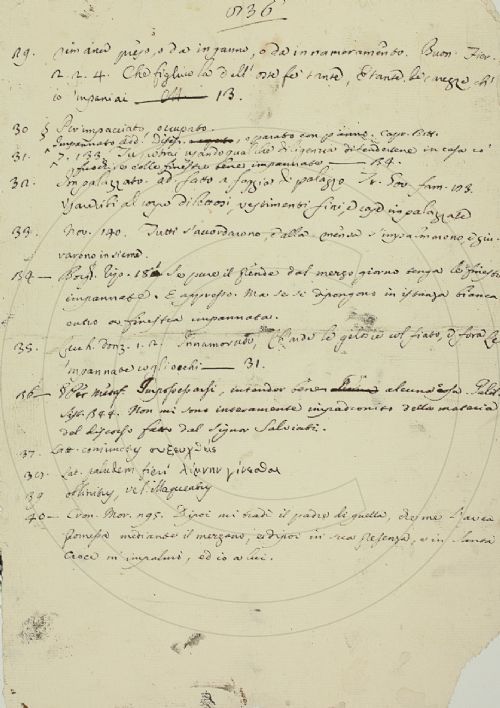 836
29. preso, o da inganno, o da innamoramento. Buon. Fier.
2. 2. 4. Che figliuola dell'oste fe tante, e tante carezze ch'
io impaniai 13.
30 § Per impacciato, occupato.
Impannato add. o parato con panno. Capr. Bott.
31. 7. 133. usando qualche diligenza di tenersene in casa co'
fuochi e colle finestre bene impannate 34.
32. Impalazzato. ad. fatto a foggia di palazzo Fr. Gior. fam. 108.
al corpo dilettosi, vestimenti fini, e case impalazzate
33. Nov. 140. Tutti s'accordarono, dalla mensa s'impannarono, e giu-
varono insieme.
34 — Borgh. Ripo. 18 Se pure il fiende dal mezzo giorno tenga le finestre
impannate. E appresso. Ma se si dipongono in istanza bianca
entro a finestra impannata.
35. Luch. donz. 1. 2. Innamorato, Che arde le gelosie col fiato, e fora le
impannate cogli occhi — 31.
36 — § Per metaf. Impossessarsi, intender bene alcuna cosa. Galil.
Sist. 344. Non mi sono interamente impadronito della materia
del discorso fatto dal Signor Salviati.
37. Lat. coniunctus συζευχθείς
38. Lat. paludem fieri λίμνην γίνεσθαι
39 oblinitus, vel illaqueatus
40 — Cron. Mor. 295. Dipoi mi tradì il padre di quella, che me l'avea
promessa mediante il mezzano, e dipoi in sua presenza, e in Santa
Croce m'impalmò, ed io a lui.